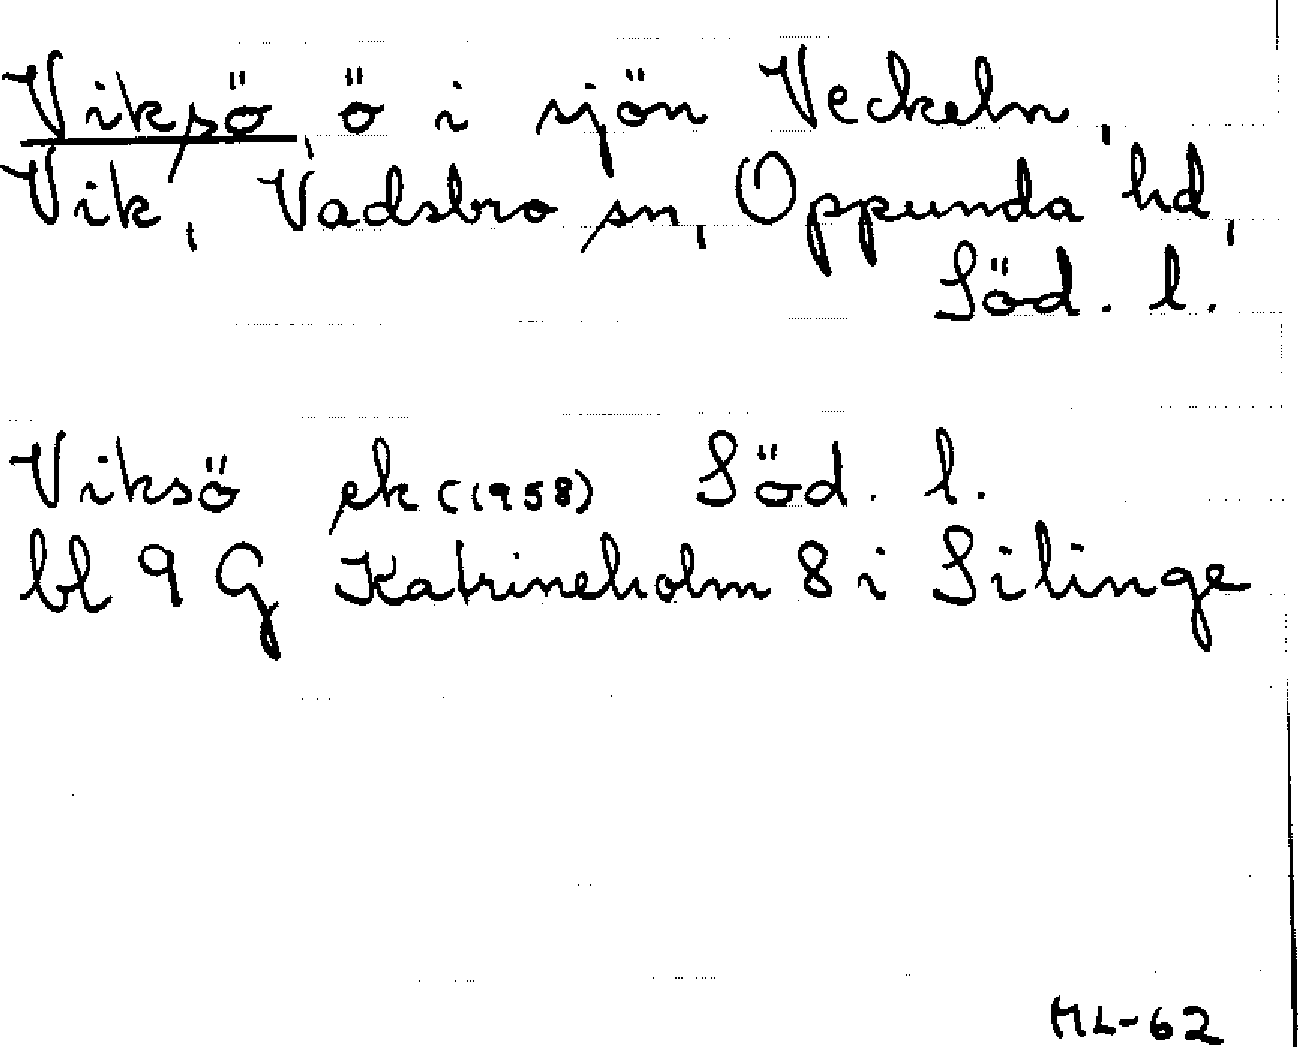 Viksö, ö i sjön Veckeln,
Vik, Vadsbro sn, Oppunda hd,
Söd. l.
Viksö ek (1958) Söd. l.
bl 9 G Katrineholm 8 i Silinge
ML-62